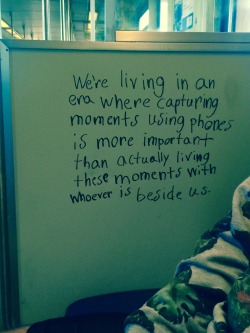 We're living in an
era where capturing
moments using phones
is more important
than actually living
these moments with
whoever is beside us.